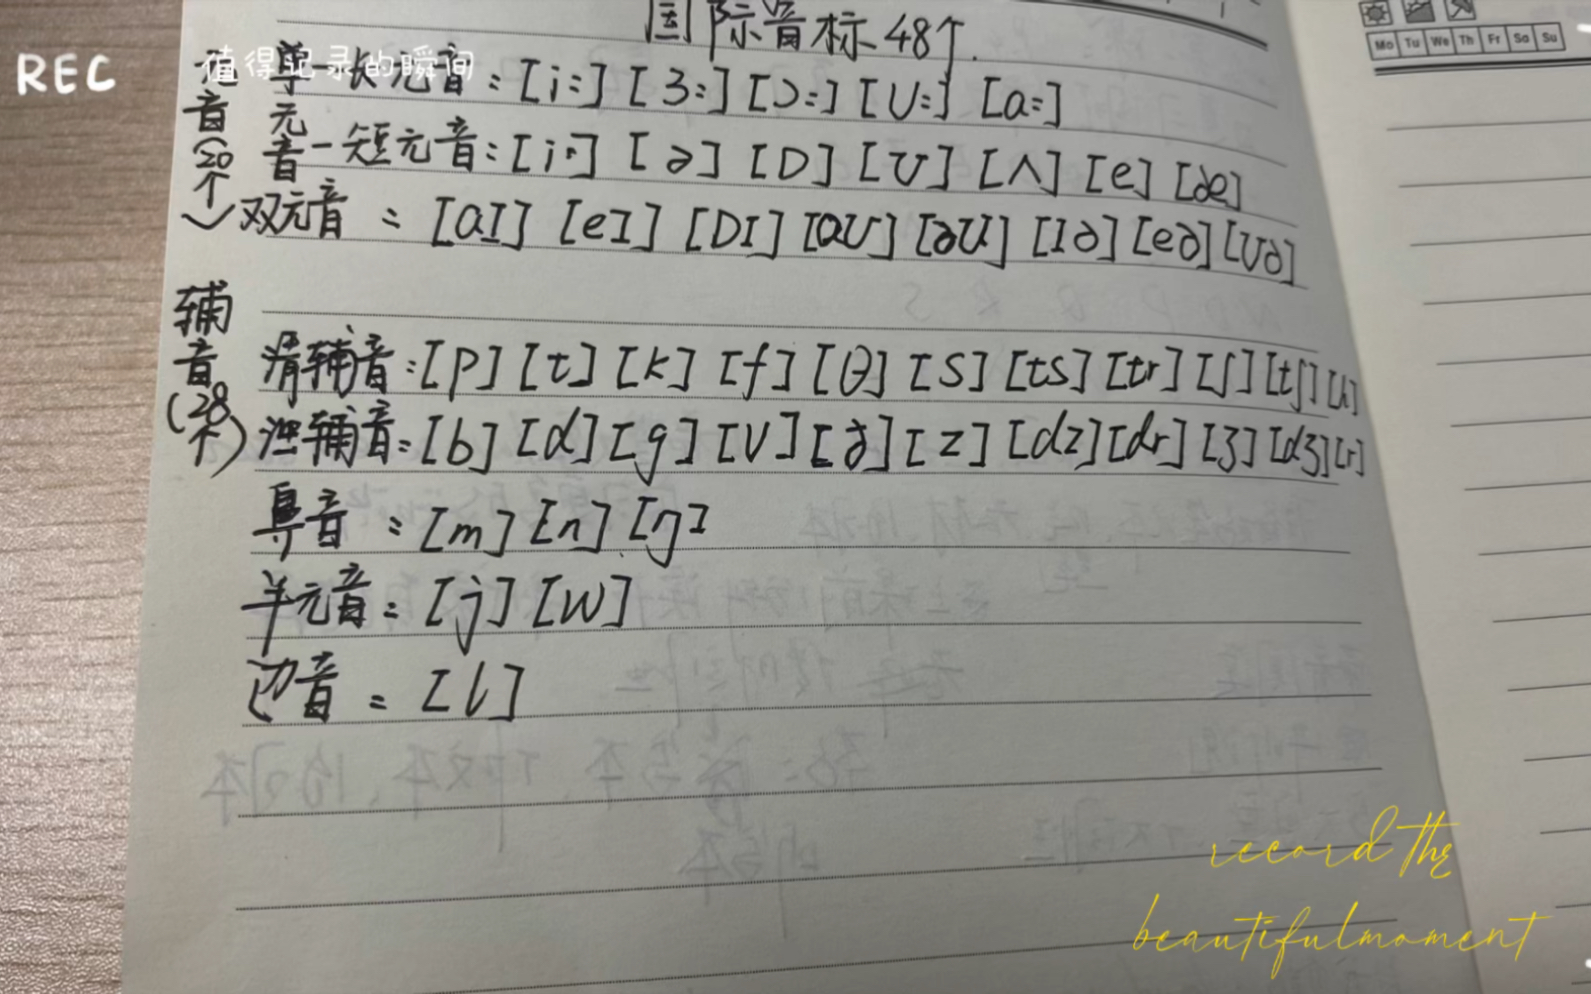 国际音标48个.
Mo Tu We Th Fr Sa Su
REC
值得记录的瞬间
元音(20个) 单元音-长元音:[i:] [3:] [Ɔ:] [U:] [a:]
-短元音:[i·] [ə] [D] [U] [Λ] [e] [æ]
双元音:[aI] [eI] [DI] [aU] [əU] [Iə] [eə] [Uə]
辅音(28个) 清辅音:[p] [t] [k] [f] [θ] [S] [ts] [tr] [ʃ] [tʃ] [h]
浊辅音:[b] [d] [g] [V] [ð] [z] [dz] [dr] [ʒ] [dʒ] [r]
鼻音:[m] [n] [ŋ]
半元音:[j] [W]
边音:[l]
record the
beautifulmoment